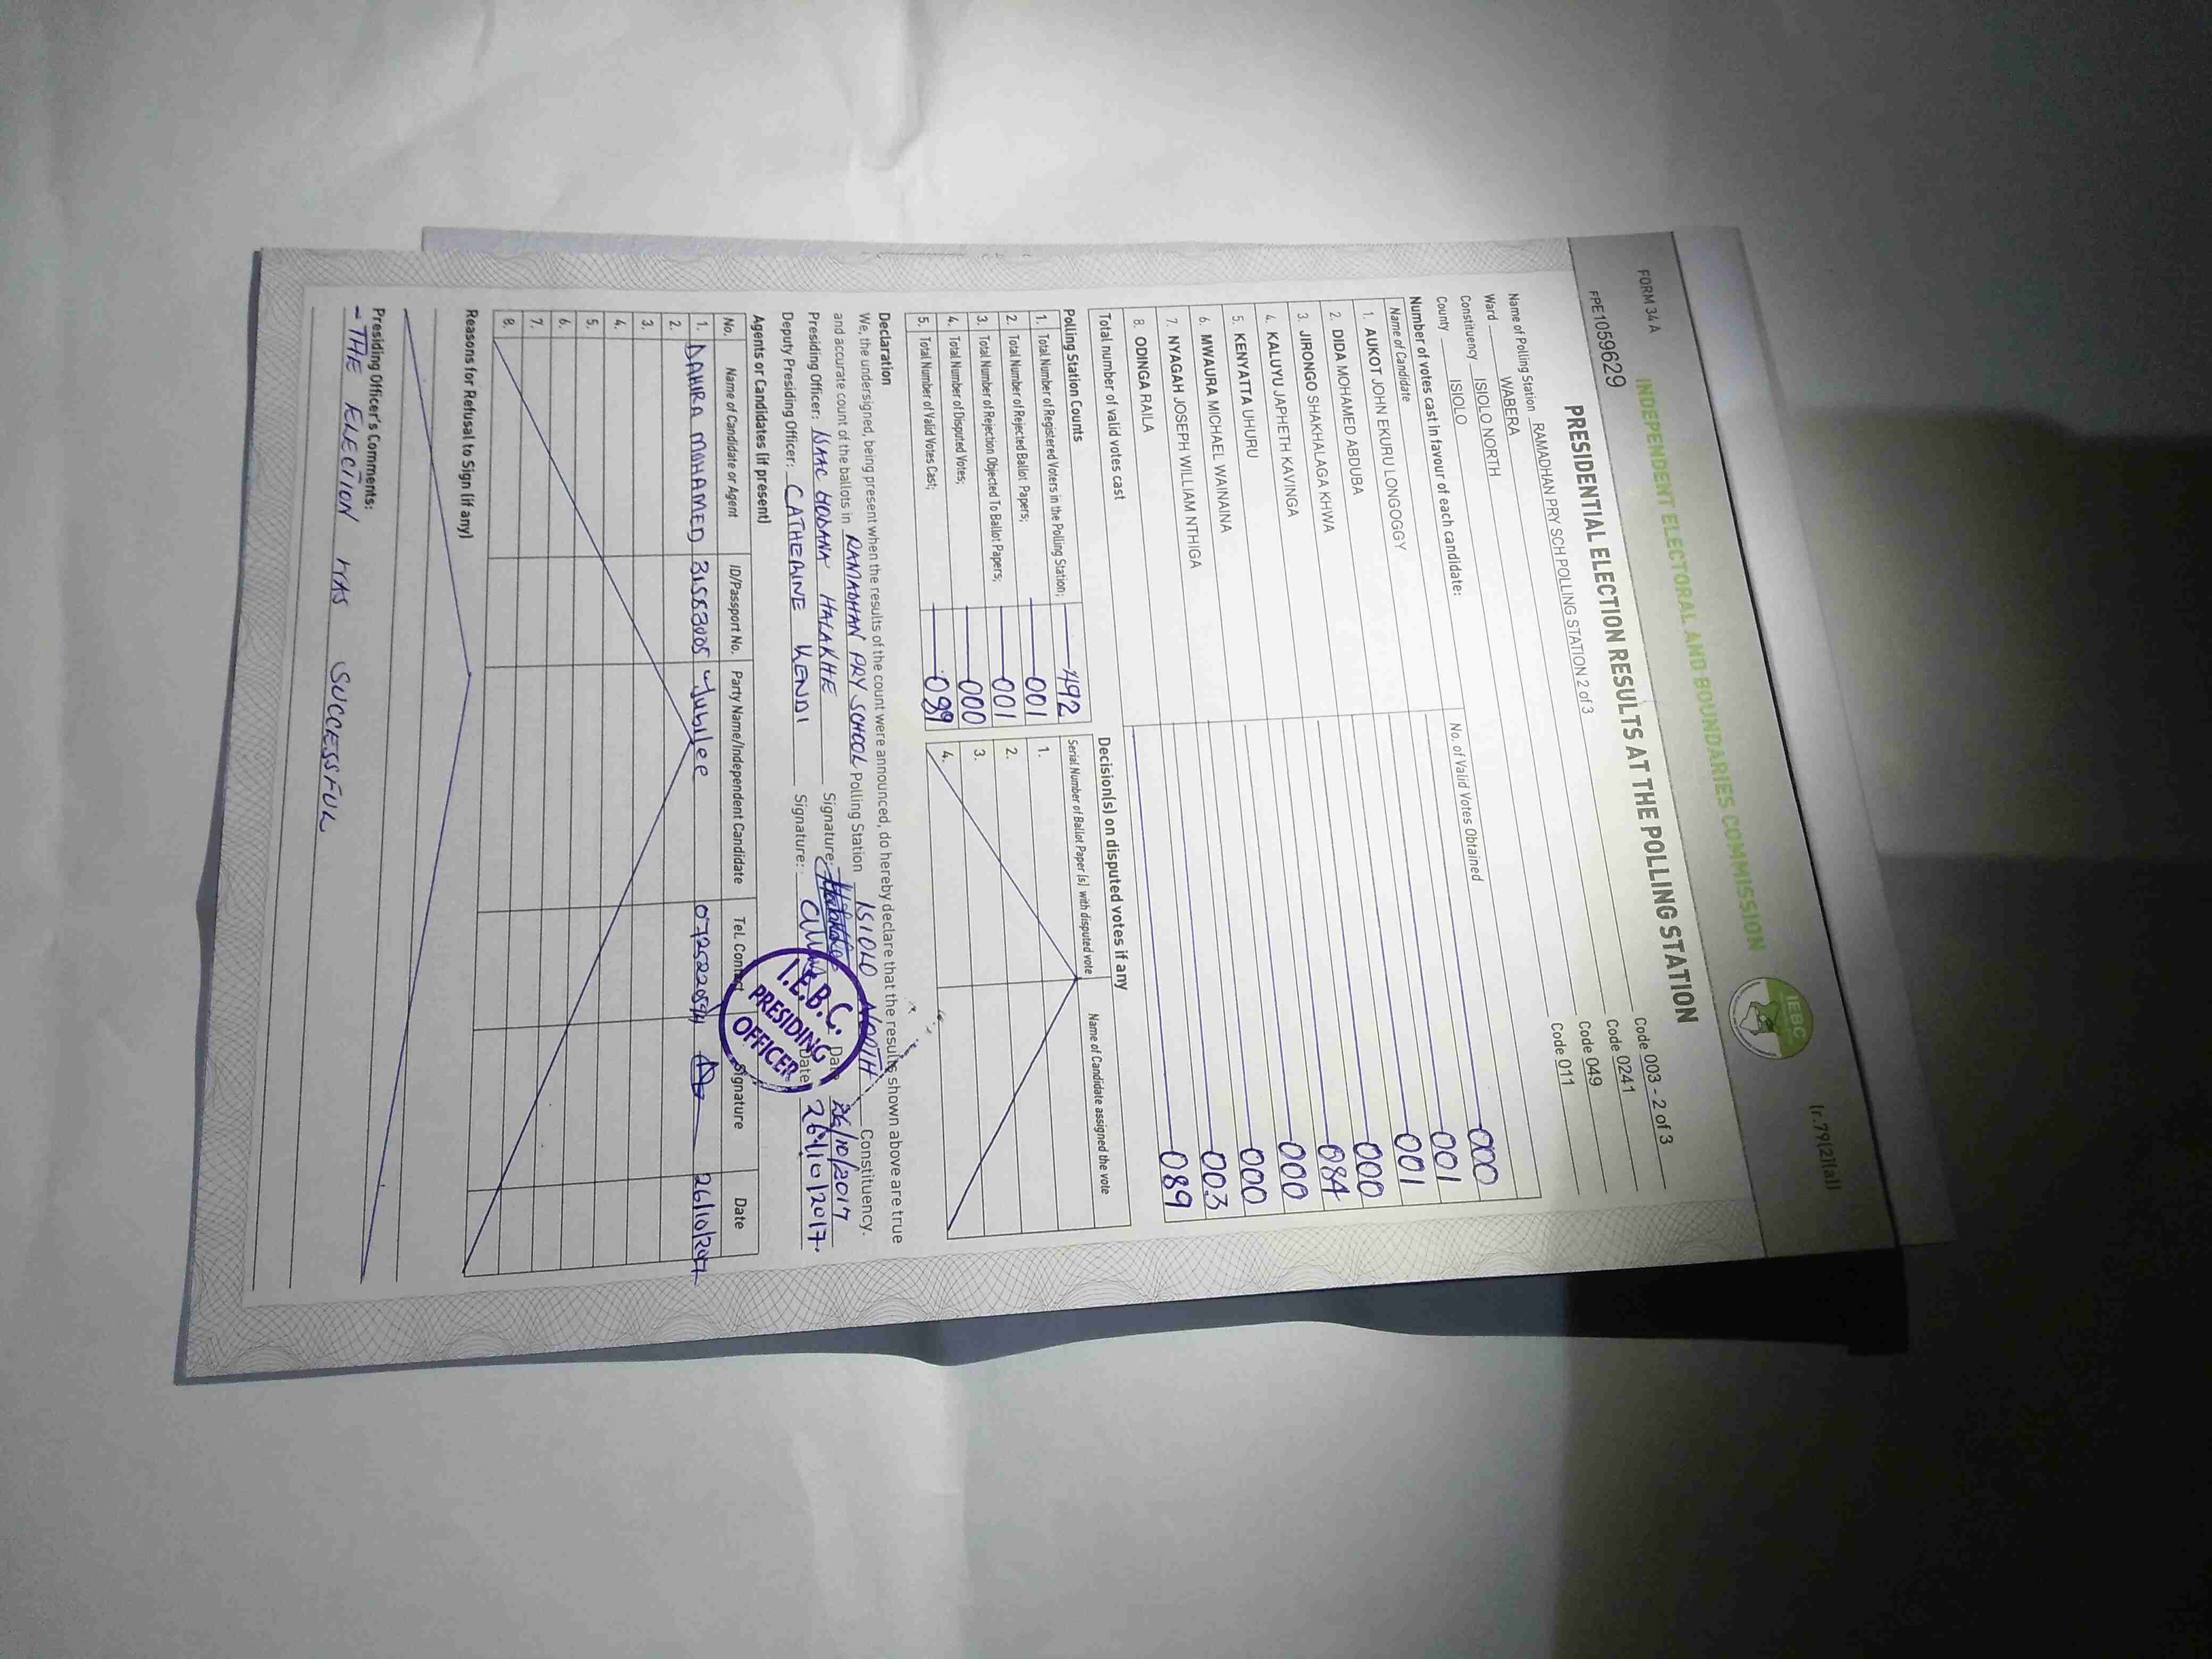 (r.79(2)(a))
FORM 34 A
INDEPENDENT ELECTORAL AND BOUNDARIES COMMISSION
IEBC
FPE1059629
PRESIDENTIAL ELECTION RESULTS AT THE POLLING STATION
Name of Polling Station RAMADHAN PRY SCH POLLING STATION 2 of 3 Code 003 - 2 of 3
Ward WABERA Code 0241
Constituency ISIOLO NORTH Code 049
County ISIOLO Code 011
Number of votes cast in favour of each candidate:
Name of Candidate No. of Valid Votes Obtained
1. AUKOT JOHN EKURU LONGOGGY 000
2. DIDA MOHAMED ABDUBA 001
3. JIRONGO SHAKHALAGA KHWA 001
4. KALUYU JAPHETH KAVINGA 000
5. KENYATTA UHURU 084
6. MWAURA MICHAEL WAINAINA 000
7. NYAGAH JOSEPH WILLIAM NTHIGA 000
8. ODINGA RAILA 003
Total number of valid votes cast 089
Polling Station Counts
1. Total Number of Registered Voters in the Polling Station; 492
2. Total Number of Rejected Ballot Papers; 001
3. Total Number of Rejection Objected To Ballot Papers; 001
4. Total Number of Disputed Votes; 000
5. Total Number of Valid Votes Cast; 089
Decision(s) on disputed votes if any
Serial Number of Ballot Paper (s) with disputed vote Name of Candidate assigned the vote
1.
2.
3.
4.
Declaration
We, the undersigned, being present when the results of the count were announced, do hereby declare that the results shown above are true
and accurate count of the ballots in RAMADHAN PRY SCHOOL Polling Station ISIOLO NORTH Constituency.
Presiding Officer: ISAAC HALAKHE Signature: Date 26/10/2017
Deputy Presiding Officer: CATHERINE KENDI Signature: Date 26/10/2017.
I.E.B.C.
PRESIDING
OFFICER
Agents or Candidates (if present)
No. Name of Candidate or Agent ID/Passport No. Party Name/Independent Candidate Tel. Contact Signature Date
1. DAHIRA MOHAMED Jubilee 26/10/2017
2.
3.
4.
5.
6.
7.
8.
Reasons for Refusal to Sign (if any)
Presiding Officer's Comments:
- THE ELECTION WAS SUCCESSFUL